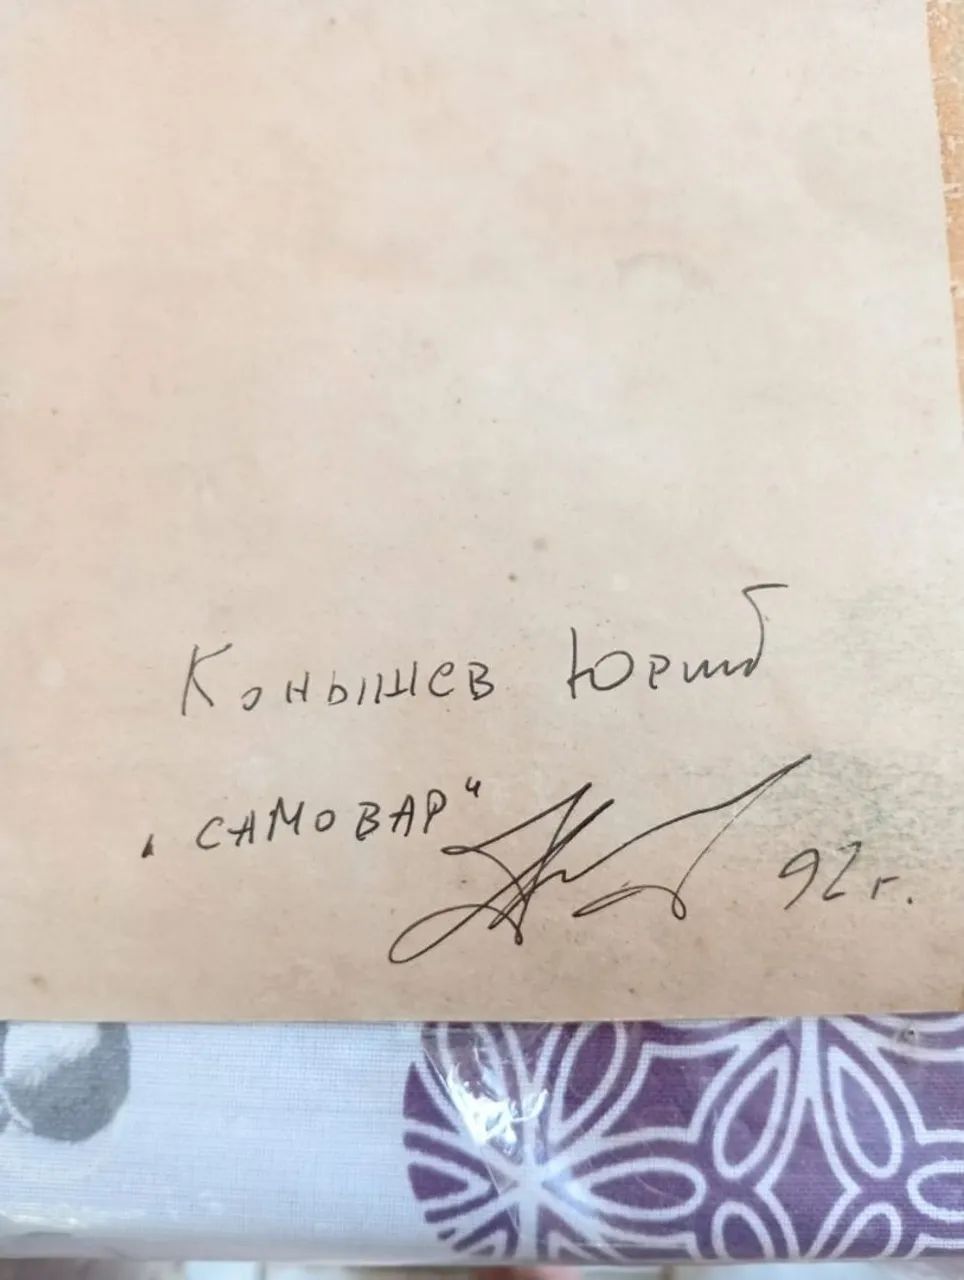 Конышев Юрий
„САМОВАР“
92 г.